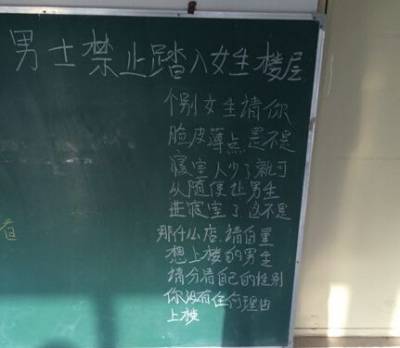 男士禁止踏入女生楼层
个别女生请你
脸皮薄点是不是
寝室人少了就可
以随便让男生
进寝室了这不是
那什么店,请自重
想上楼的男生
请分清自己的性别
你没有任何理由
上楼
值